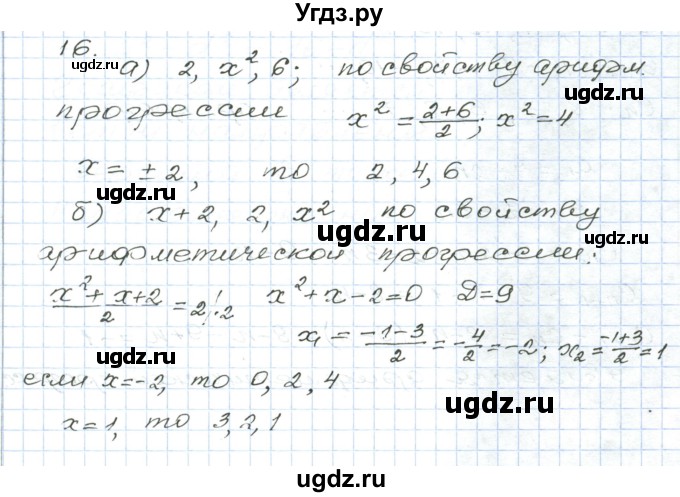 Угдз.ру
16.
а) 2, x², 6; по свойству арифм.
ugdz.ru ugdz.ru
прогрессии x² = (2+6)/2; x² = 4
x = ±2, то 2, 4, 6
ugdz.ru ugdz.ru
б) x+2, 2, x² по свойству
ugdz.ru
арифметической прогрессии:
ugdz.ru ugdz.ru
(x²+x+2)/2 = 2 |·2 x²+x-2=0 D=9
x₁ = (-1-3)/2 = -4/2 = -2; x₂ = (-1+3)/2 = 1
ugdz.ru
если x=-2, то 0, 2, 4
ugdz.ru
x=1, то 3, 2, 1
ugdz.ru ugdz.ru
ugdz.ru